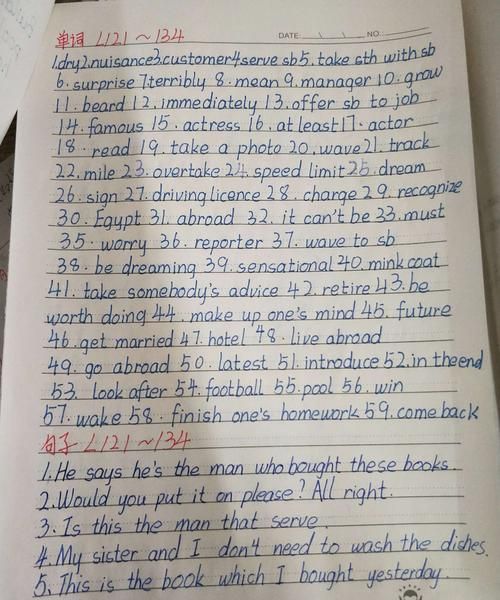 单词 L121～134 DATE: \ \ NO.:
1.dry2.nuisance3.customer4serve sb5. take sth with sb
6. surprise 7terribly 8. mean 9.manager 10. grow
11. beard 12. immediately 13. offer sb to job
14. famous 15. actress 16. at least17. actor
18. read 19. take a photo 20. wave21. track
22. mile 23. overtake 24. speed limit25. dream
26. sign 27. driving licence 28. charge 29. recognize
30. Egypt 31. abroad 32. it can't be 23. must
35. worry 36. reporter 37. wave to sb
38. be dreaming 39. sensational 40. mink coat
41. take somebody's advice 42. retire 43. be
worth doing 44. make up one's mind 45. future
46. get married 47. hotel 48. live abroad
49. go abroad 50. latest 51. introduce 52. in the end
53. look after 54. football 55. pool 56. win
57. wake 58. finish one's homework 59. come back
句子 L121～134
1. He says he's the man who bought these books.
2. Would you put it on please? All right.
3. Is this the man that serve.
4. My sister and I don't need to wash the dishes.
5. This is the book which I bought yesterday.